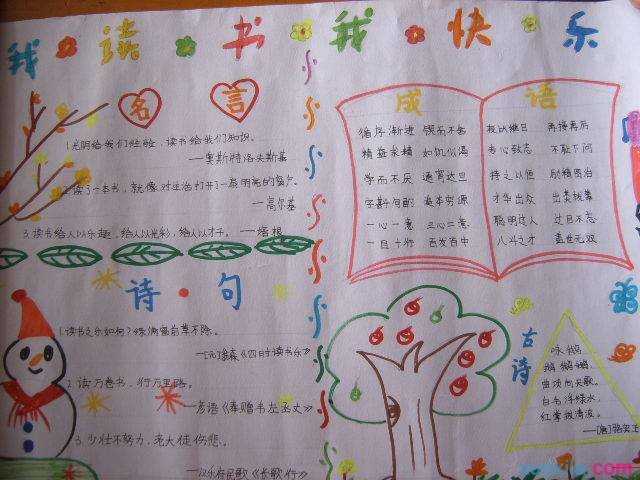 我读书我快乐
名言
1.光阴给我们经验，读书给我们知识。
——奥斯特洛夫斯基
2.读了一本书，就像对生活打开了一扇明亮的窗户。
——高尔基
3.读书给人以乐趣，给人以光彩，给人以才干。——培根
诗·句
1.读书之乐如何？绿满窗前草不除。
《四时读书乐》
2.读万卷书，行万里路。
3.少壮不努力，老大徒伤悲。
——汉乐府民歌《长歌行》
成语
循序渐进 锲而不舍 夜以继日 再接再厉
精益求精 如饥似渴 专心致志 不耻下问
学而不厌 通宵达旦 持之以恒 励精图治
字斟句酌 追本穷源 才华出众 出类拔萃
一心一意 三心二意 聪明过人 过目不忘
一目十行 百发百中 八斗之才 盖世无双
古诗
咏鹅
鹅鹅鹅
曲项向天歌。
白毛浮绿水，
红掌拨清波。
com